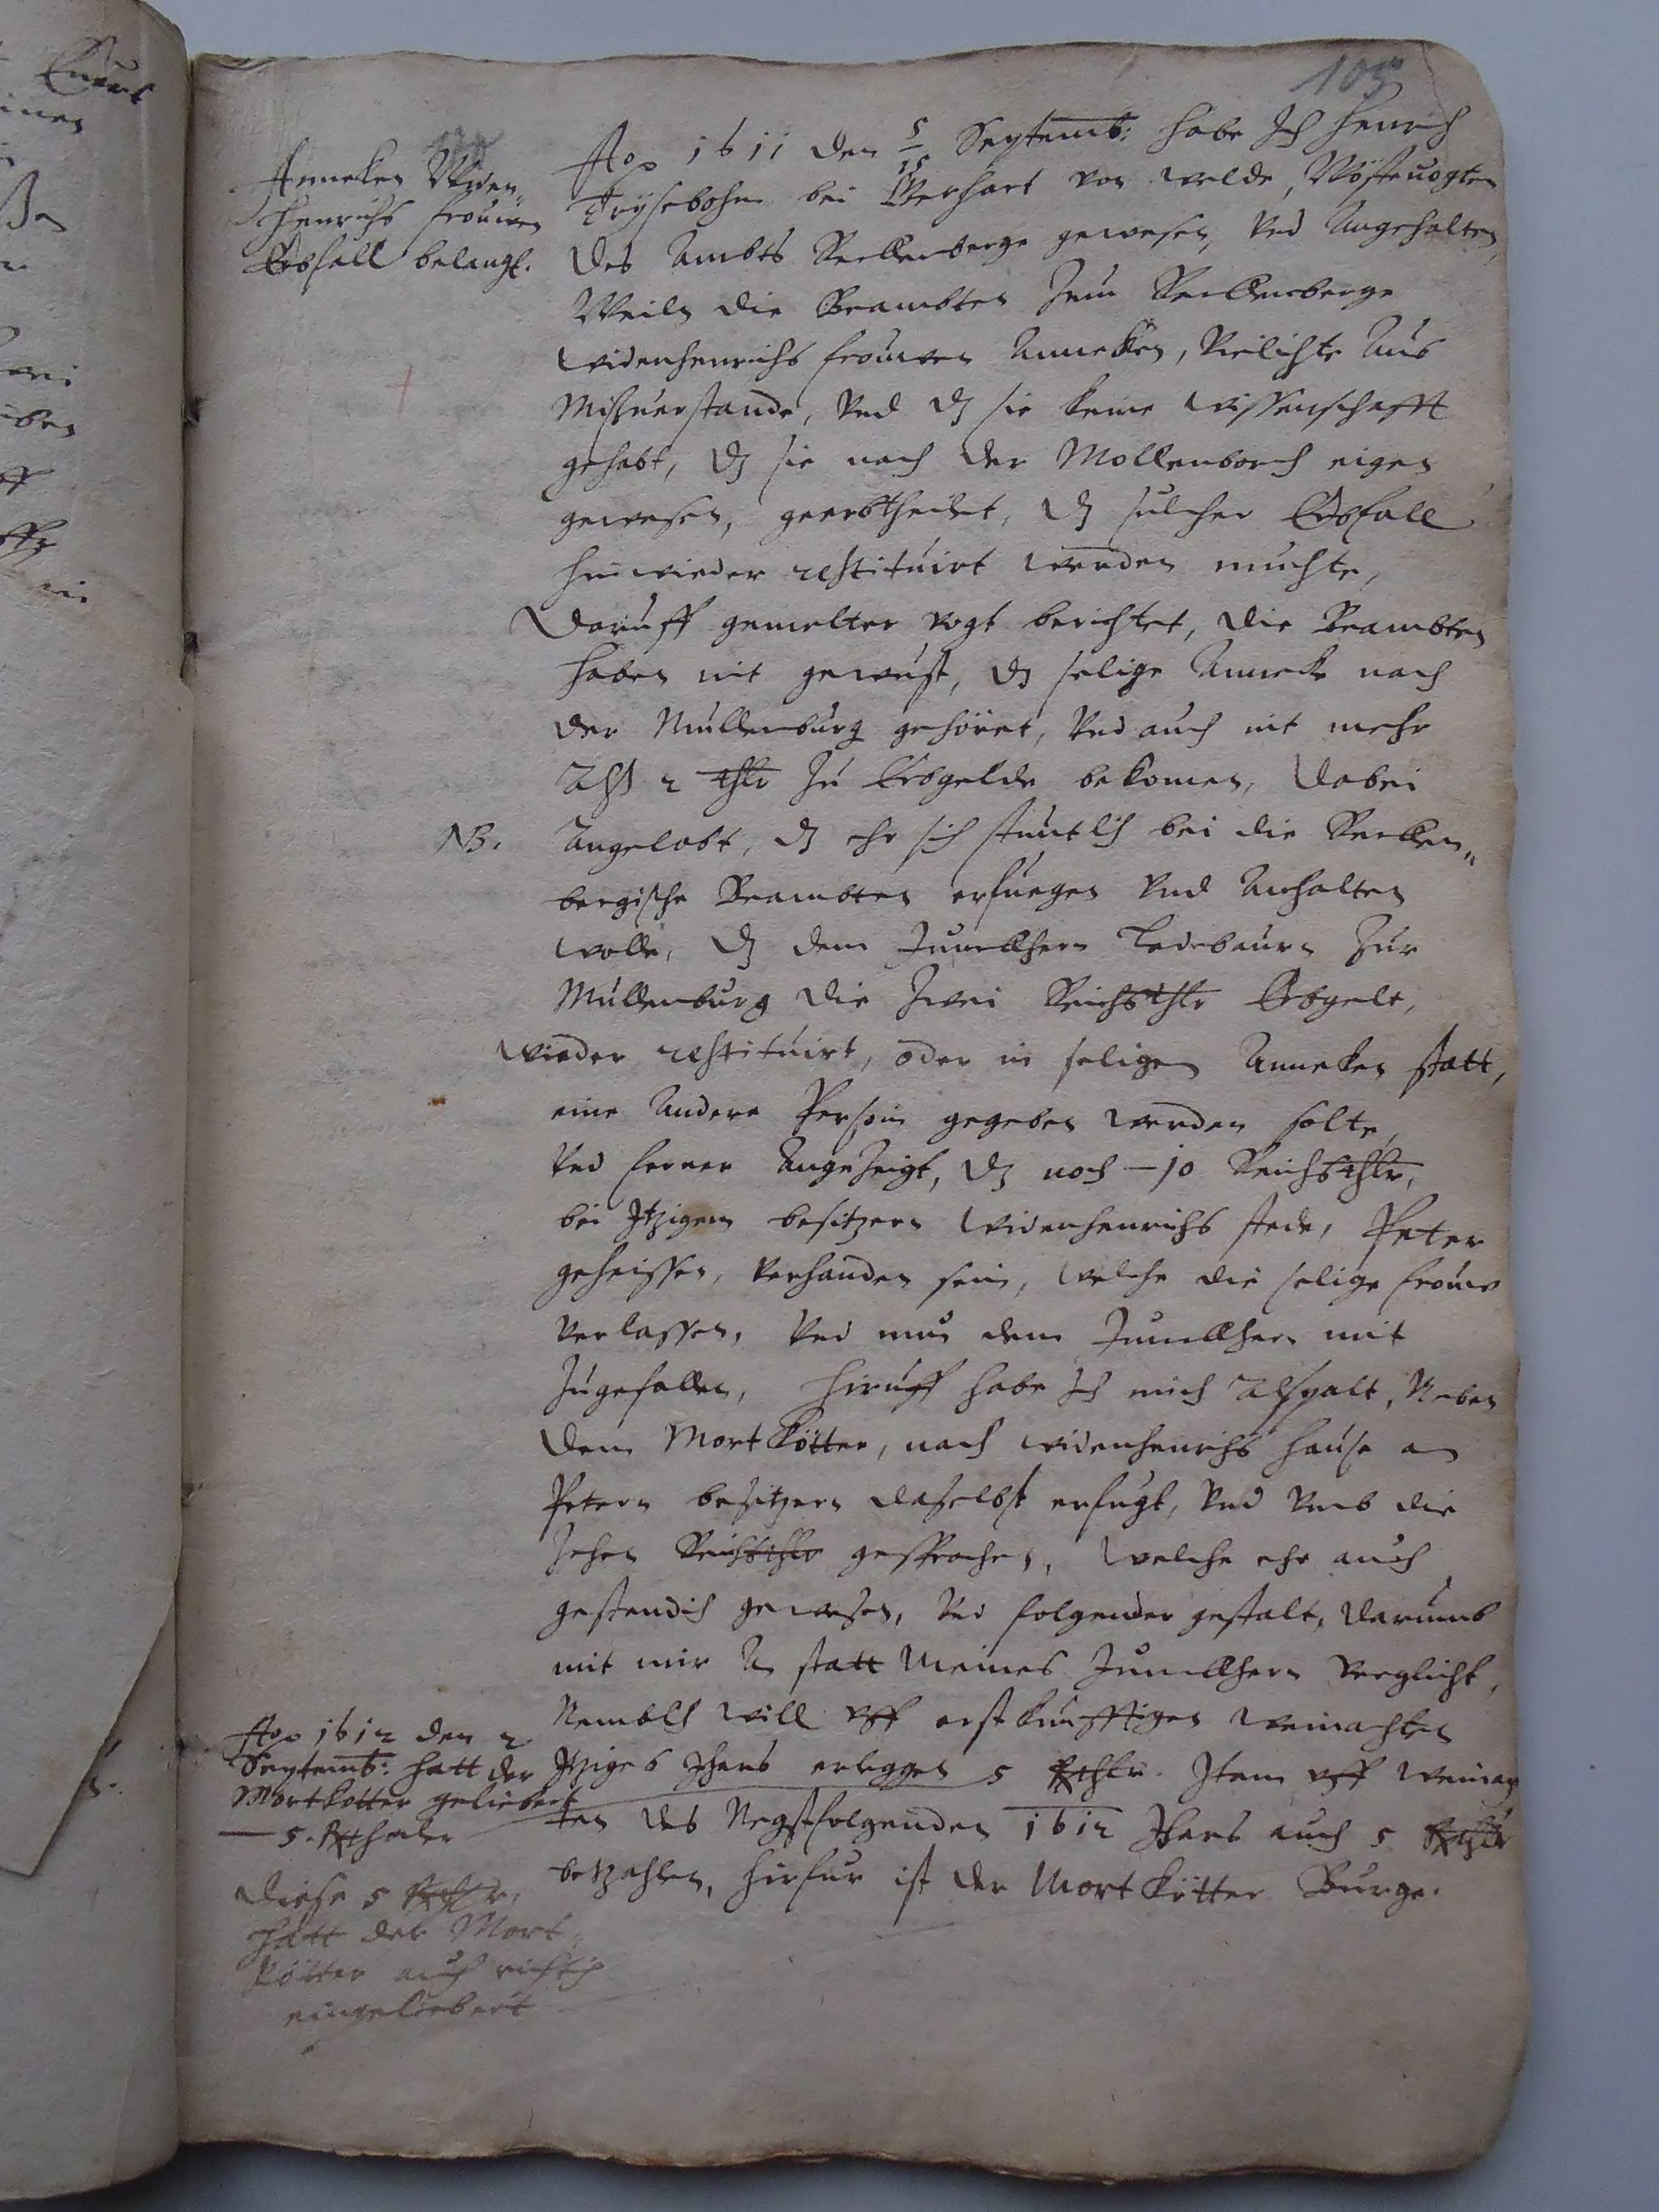 105
Anneken Widen„
henrichs frouwen
Erbfall belangt.
Ao 1611 den 5/15 Septemb: habe Ich Henrich
Frÿsebohm bei Gerhart von welde, Wöstenvogten
des Ambts Reckenberge gewesen, Und Angehalten,
Weiln die Beambten Zum Reckenberge
widenhenrichs frouwen Anneken, Vielichte Aus
Mißverstande, Und dz sie keine wissenschafft
gehabt, dz sie nach der Mollenborch eigen
gewesen, geerbtheilet, dz sulcher Erbfall
hinwieder restituirt werden muchte,
Daruff gemelter vogt berichtet, die Beambten
haben nit gewust, dz selige Annecke nach
der Mullenburg gehöret, Und auch nit mehr
Alß 2 thlr Zu Erbgelde bekomen, Dabei
NB.
Angelobt, dz ehr sich stuntlich bei die Recken„
bergische Beambten erfuegen Und Anhalten
wolle, dz dem Junckhern Ledebaurn Zur
Mullenburg die Zwei Reichsthlr Erbgelt,
wieder restituirt, oder in seligen Anneken statt,
eine Andere Persoin gegeben werden solte,
Und ferner Angezeigt, dz noch — 10 Reichsthlr,
bei Itzigem besitzern widenhenrichs stede, Peter
geheissen, Verhanden sein, welche die selige frouw
Verlassen, Und nun dem Junckhern mit
Zugefallen, Hiruff habe Ich mich Alspalt, Neben
dem Mortkötter, nach widenhenrichs hause an
Petern besitzern daselbst erfugt, Und Umb die
Zehen Reichsthlr gesprochen, welche ehr auch
gestendich gewesen, Und folgender gestalt, darumb
mit mir An statt Meines Junckhern Verglicht,
Nemblich will uff erstkunfftigen weinachten
Itziges Jhars erleggen 5 Rthlr. Item uff weinach
ten des Negstfolgenden 1612 Jhars auch 5 Rthlr
betzahlen, hirfur ist der Mortkötter Burge.
Ao 1612 den 2
Septemb: hatt der
Mortkotter geliebert
— 5. Rthaler
Diese 5 Rthlr,
hatt der Mort„
kötter auch richtig
eingeliebert